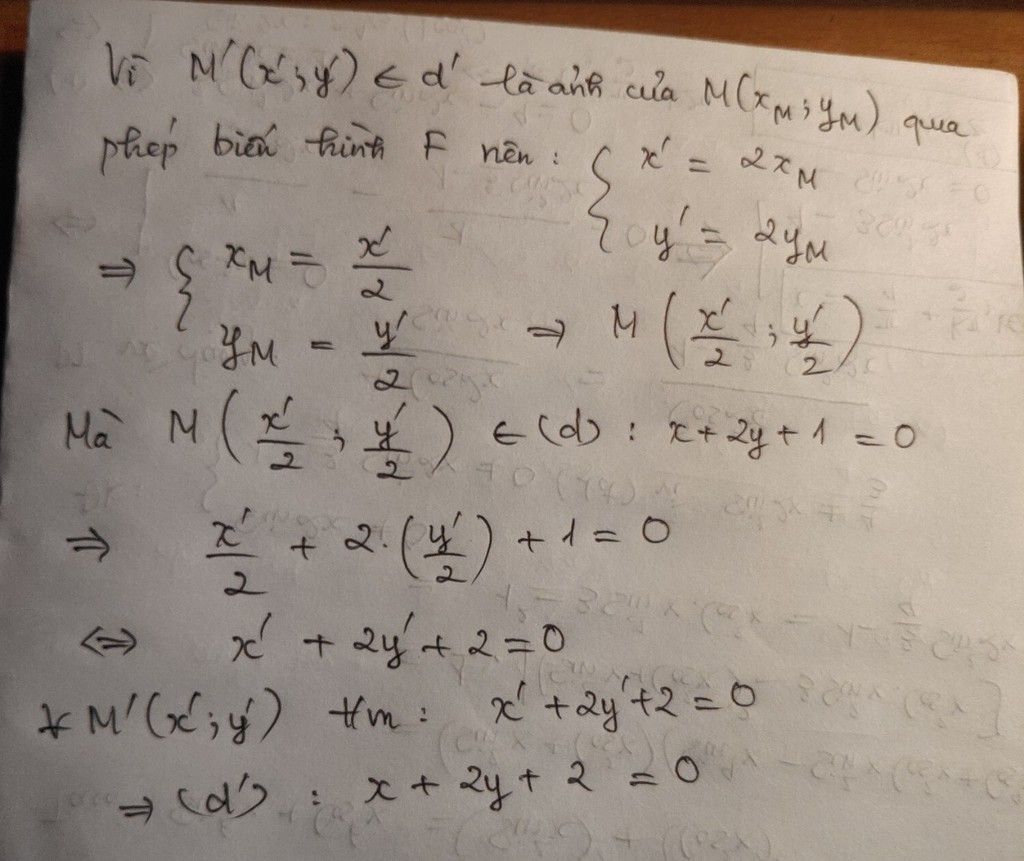 Vì M'(x';y') ∈ d' là ảnh của M(x_M; y_M) qua
phép biến hình F nên: { x' = 2x_M
y' = 2y_M
⇒ { x_M = x'/2
y_M = y'/2 ⇒ M (x'/2 ; y'/2)
Mà M (x'/2 ; y'/2) ∈ (d) : x + 2y + 1 = 0
⇒ x'/2 + 2.(y'/2) + 1 = 0
⇔ x' + 2y' + 2 = 0
* M'(x';y') t/m: x' + 2y' + 2 = 0
⇒ (d') : x + 2y + 2 = 0